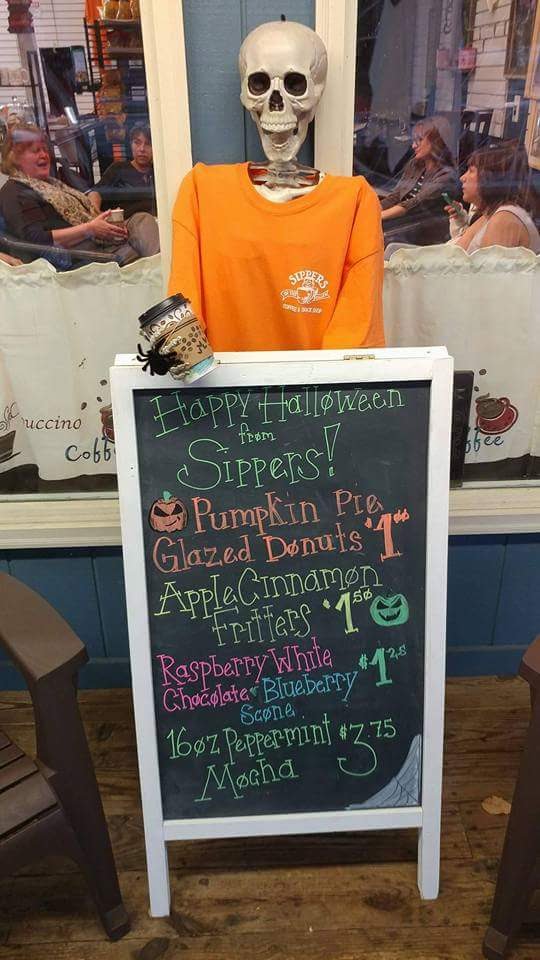 SIPPERS
COFFEE & BAKE SHOP
uccino
Coff
ffee
Happy Halloween
from
Sippers!
Pumpkin Pie
Glazed Donuts $1.00
Apple Cinnamon
Fritters $1.50
Raspberry White
Chocolate Blueberry $1.25
Scone
16oz Peppermint $3.75
Mocha